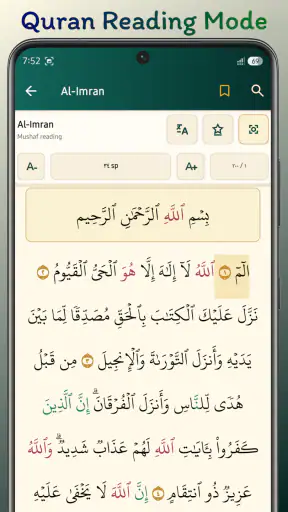 Quran Reading Mode
7:52 69
Al-Imran
Al-Imran
Mushaf reading
A- ٢٤ sp A+ ٢٠٠ / ١
بِسْمِ ٱللَّهِ ٱلرَّحْمَٰنِ ٱلرَّحِيمِ
الٓمٓ ١ ٱللَّهُ لَآ إِلَٰهَ إِلَّا هُوَ ٱلْحَىُّ ٱلْقَيُّومُ ٢
نَزَّلَ عَلَيْكَ ٱلْكِتَٰبَ بِٱلْحَقِّ مُصَدِّقًا لِّمَا بَيْنَ
يَدَيْهِ وَأَنزَلَ ٱلتَّوْرَىٰةَ وَٱلْإِنجِيلَ ٣ مِن قَبْلُ
هُدًى لِّلنَّاسِ وَأَنزَلَ ٱلْفُرْقَانَ ۗ إِنَّ ٱلَّذِينَ
كَفَرُوا۟ بِـَٔايَٰتِ ٱللَّهِ لَهُمْ عَذَابٌ شَدِيدٌ ۗ وَٱللَّهُ
عَزِيزٌ ذُو ٱنتِقَامٍ ٤ إِنَّ ٱللَّهَ لَا يَخْفَىٰ عَلَيْهِ